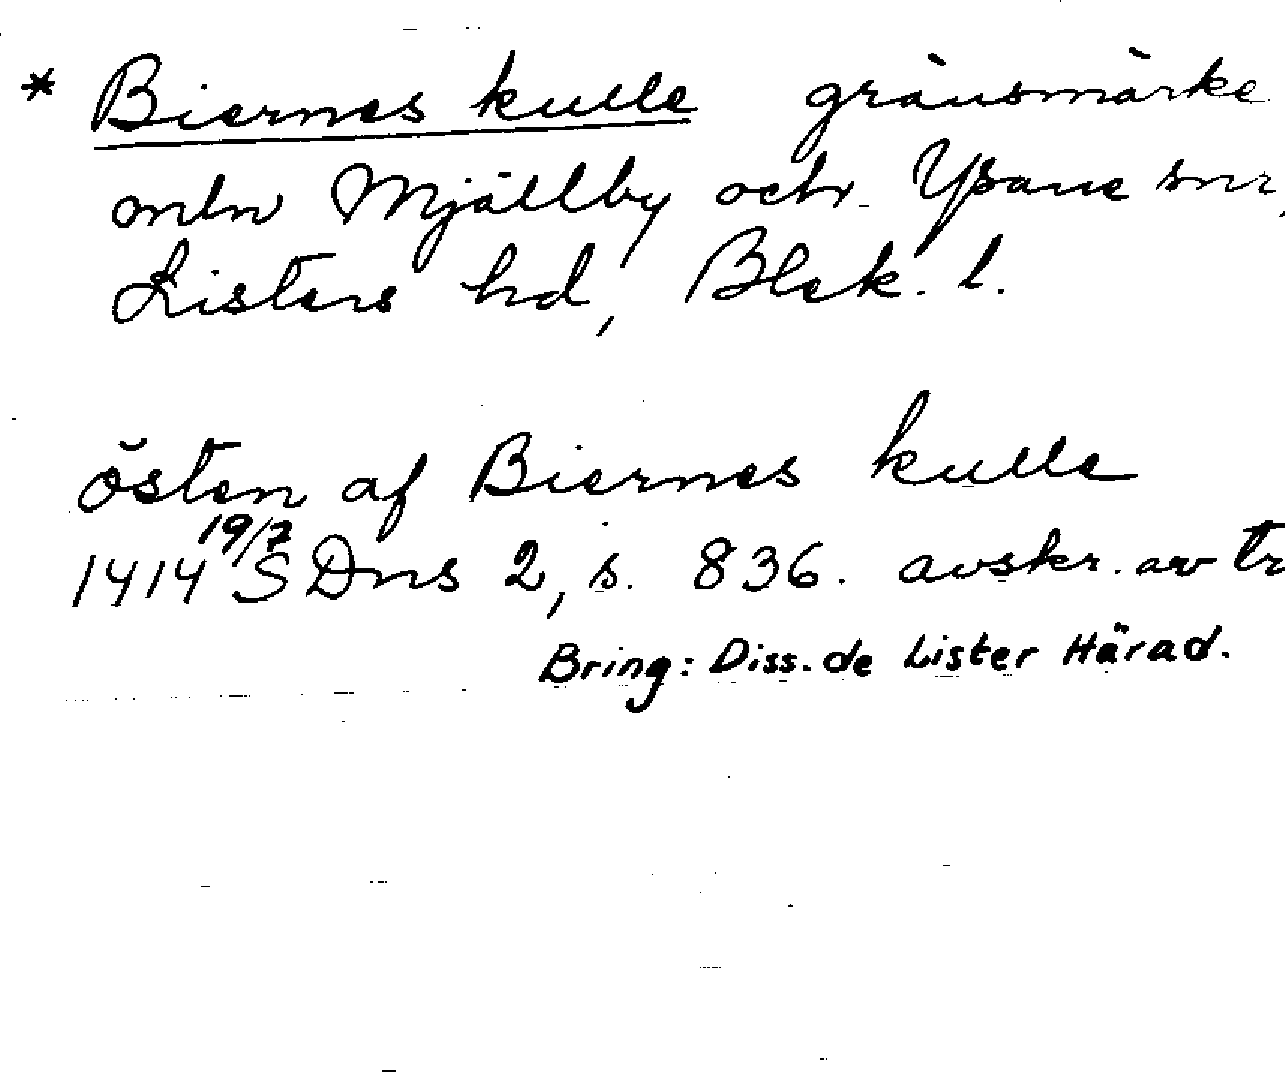 * Biernes kulle gränsmärke
mln Mjällby och Ysane snr,
Listers hd, Blek. l.
östen af Biernes kulle
1414 19/7 SDns 2, s. 836. avskr. av tr
Bring: Diss. de Lister Härad.